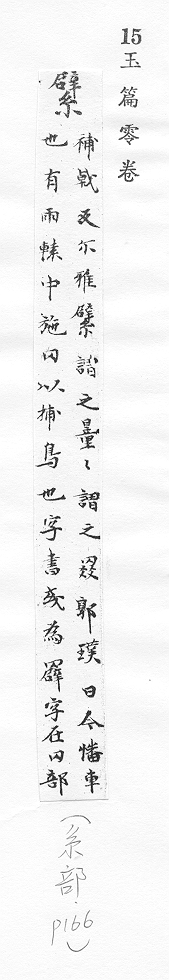 15玉篇零卷
繴 補戟反尒雅繴謂之䍖〻謂之罬郭璞曰今幡車
也有兩轅中施罔以捕鳥也字書或為𦌭字在罔部
（糸部．P166）